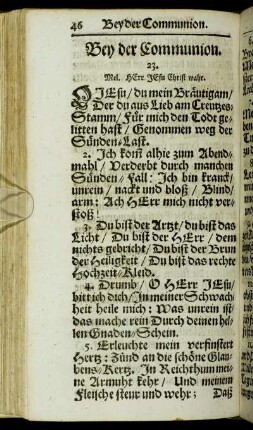 46 Bey der Communion.
Bey der Communion.
23.
Mel. HErr JEsu Christ wahr.
O JEsu/ du mein Bräutigam/
Der du aus Lieb am Creutzes
Stamm/ Für mich den Todt ge-
litten hast/ Genommen weg der
Sünden-Last.
2. Ich kom̃ alhie zum Abend-
mahl/ Verderbt durch manchen
Sünden-Fall: Ich bin kranck/
unrein/ nackt und bloß/ Blind/
arm: Ach HErr mich nicht ver-
stoß!
3. Du bist der Artzt/ du bist das
Licht/ Du bist der HErr/ dem
nichts gebricht/ Du bist der Brun
der Heiligkeit/ Du bist das rechte
Hochzeit-Kleid.
4. Drumb/ O HErr JEsu/
bitt ich dich/ In meiner Schwach-
heit heile mich: Was unrein ist/
das mache rein Durch deinen hel-
len Gnaden-Schein.
5. Erleuchte mein verfinstert
Hertz: Zünd an die schöne Glau-
bens-Kertz. In Reichthum mei-
ne Armuht kehr/ Und meinem
Fleische steur und wehr;
Daß